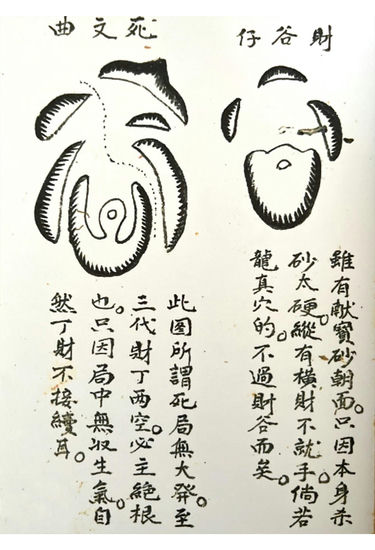 財谷仔
雖有献寳砂朝面。只因本身杀
砂太硬。縱有橫財不就手。倘若
龍真穴的。不過財谷而矣。
死文曲
此圖所謂死局無大發至
三代財丁两空。必主絕根
也。只因局中無収生氣。自
然丁財不接續耳。